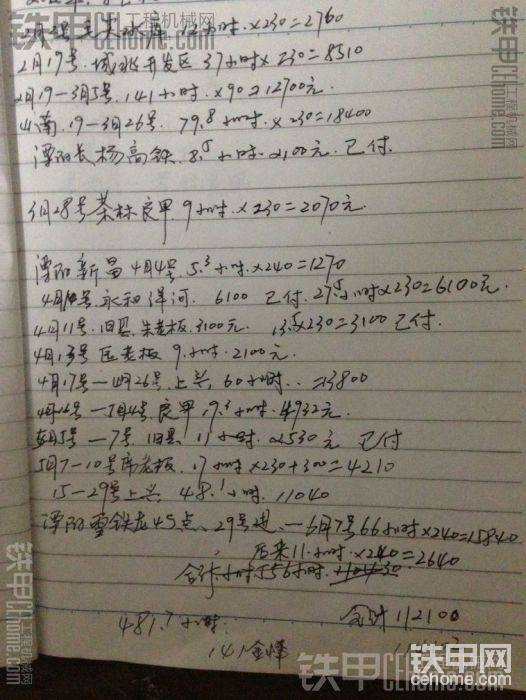 12小时.×230=2760
2月17号.城北开发区 37小时×230=8510
2月19-3月5号.141小时.×90=12700元.
山南.19-3月26号.79.8小时.×230=18400
溧阳长杨高铁.8.5小时.2100元.已付.
3月28号茶林良甲.9小时.×230=2070元.
溧阳新昌4月4号.5.3小时.×240=1270
4月10号永和洋河.6100 已付.27.5小时×230=6100元.
4月11号.旧县.朱老板.3100元. 13.5×230=3100已付.
4月13号匡老板 9小时.2100元.
4月17号—4月26号.上兴.60小时..=13800
4月26号—5月4号.良甲.19.3小时.4932元.
5月5号—7号.旧县.11小时.2530元 已付
5月7-10号席老板.17小时×230+300=4210
15-29号上兴 48.1小时.11040
溧阳雪铁龙4S点.29号进.—6月7号66小时×240=15840
后来11小时×240=2640
合计.小时556小时.
481.7小时. 合计112100
141金烽
铁甲 工程机械网
铁甲网
cehome.com